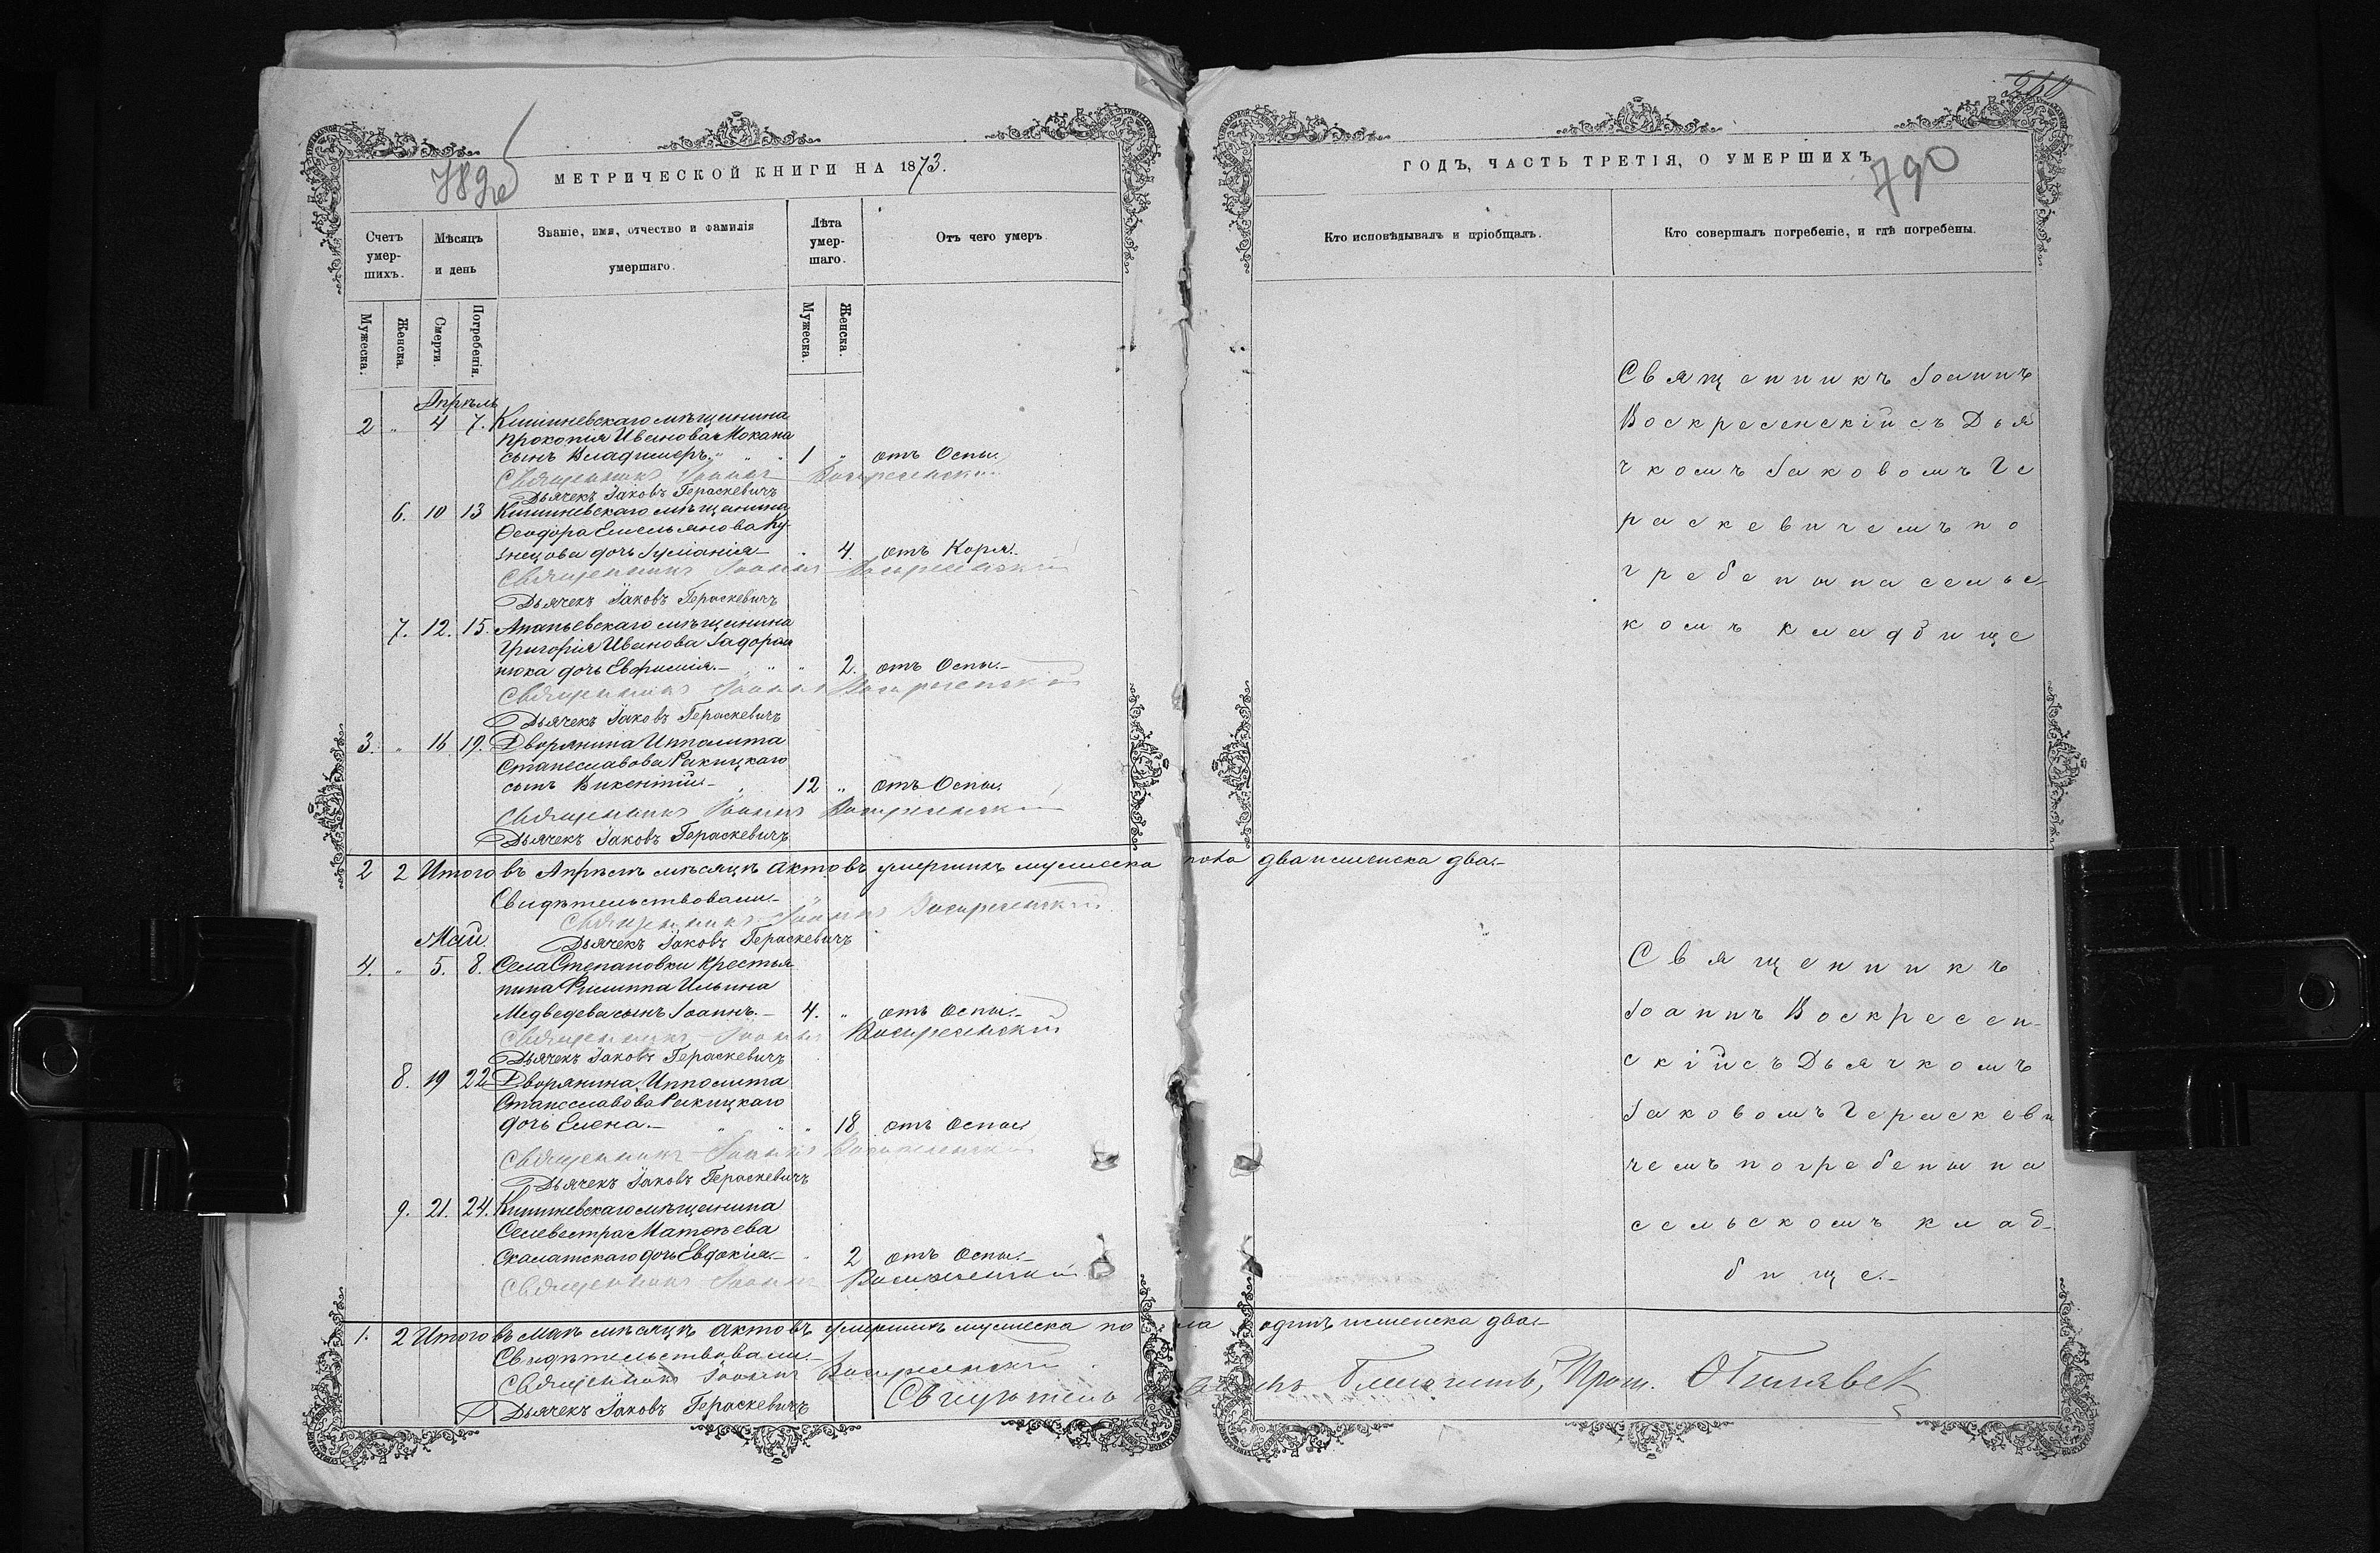 789 об
МЕТРИЧЕСКОЙ КНИГИ НА 1873.
Счетъ умершихъ.
Мѣсяцъ и день
Званіе, имя, отчество и фамилія умершаго.
Лѣта умершаго.
Отъ чего умеръ.
Мужеска.
Женска.
Смерти.
Погребенія.
Мужеска.
Женска.
Апрѣль
2 " 4 7. Кишиневскаго мѣщанина
Прокопія Иванова Мокана
сынъ Владимеръ " " 1 " отъ Оспы.
Священникъ Іоаннъ Воскресенскій
Дьячекъ Іаковъ Гераскевичъ
6. 10 13 Кишиневскаго мѣщанина
Ѳеодора Емельянова Ку
знецова дочь Іуліанія - " 4. отъ Коря.-
Священникъ Іоаннъ Воскресенскій
Дьячекъ Іаковъ Гераскевичъ
7. 12. 15. Ананьевскаго мѣщанина
Григорія Иванова Задорож
нюка дочь Евфимія.- " " 2. отъ Оспы.-
Священникъ Іоаннъ Воскресенскій
Дьячекъ Іаковъ Гераскевичъ
3. " 16 19. Дворянина Ипполита
Станеславова Ракицкаго
сынъ Викентій.- 12 " отъ Оспы.
Священникъ Іоаннъ Воскресенскій
Дьячекъ Іаковъ Гераскевичъ
2 2 Итого въ Апрѣлѣ мѣсяцѣ актовъ умершихъ мужеска пола два и женска два.-
Свидѣтельствовали.-
Священникъ Іоаннъ Воскресенскій
Дьячекъ Іаковъ Гераскевичъ
Май.
4. " 5. 8. Села Степановки крестья
нина Филиппа Ильина
Медведева сынъ Іоаннъ.- 4. " отъ Оспы.-
Священникъ Іоаннъ Воскресенскій
Дьячекъ Іаковъ Гераскевичъ
8. 19 22 Дворянина Ипполита
Станеславова Ракицкаго
дочь Елена.- " " " 18 отъ Оспы
Священникъ Іоаннъ Воскресенскій
Дьячекъ Іаковъ Гераскевичъ
9. 21. 24. Кишиневскаго мѣщанина
Селевестра Матѳѣева
Скалатскаго дочь Евдокія.- " 2 отъ Оспы.-
Священникъ Іоаннъ Воскресенскій
1. 2 Итого въ Маѣ мѣсяцѣ актовъ умершихъ мужеска пола одинъ и женска два.-
Свидѣтельствовали.-
Священникъ Іоаннъ Воскресенскій
Дьячекъ Іаковъ Гераскевичъ
260
790
ГОДЪ, ЧАСТЬ ТРЕТІЯ, О УМЕРШИХЪ
Кто исповѣдывалъ и пріобщалъ.
Кто совершалъ погребеніе, и гдѣ погребены.
Священникъ Іоаннъ
Воскресенскій съ Дья
чкомъ Іаковомъ Ге
раскевичемъ по
гребены на сельс-
комъ кладбище
Священникъ
Іоаннъ Воскресен-
скій съ Дьячкомъ
Іаковомъ Гераскеви
чемъ погребены на
сельскомъ клад-
бище.-